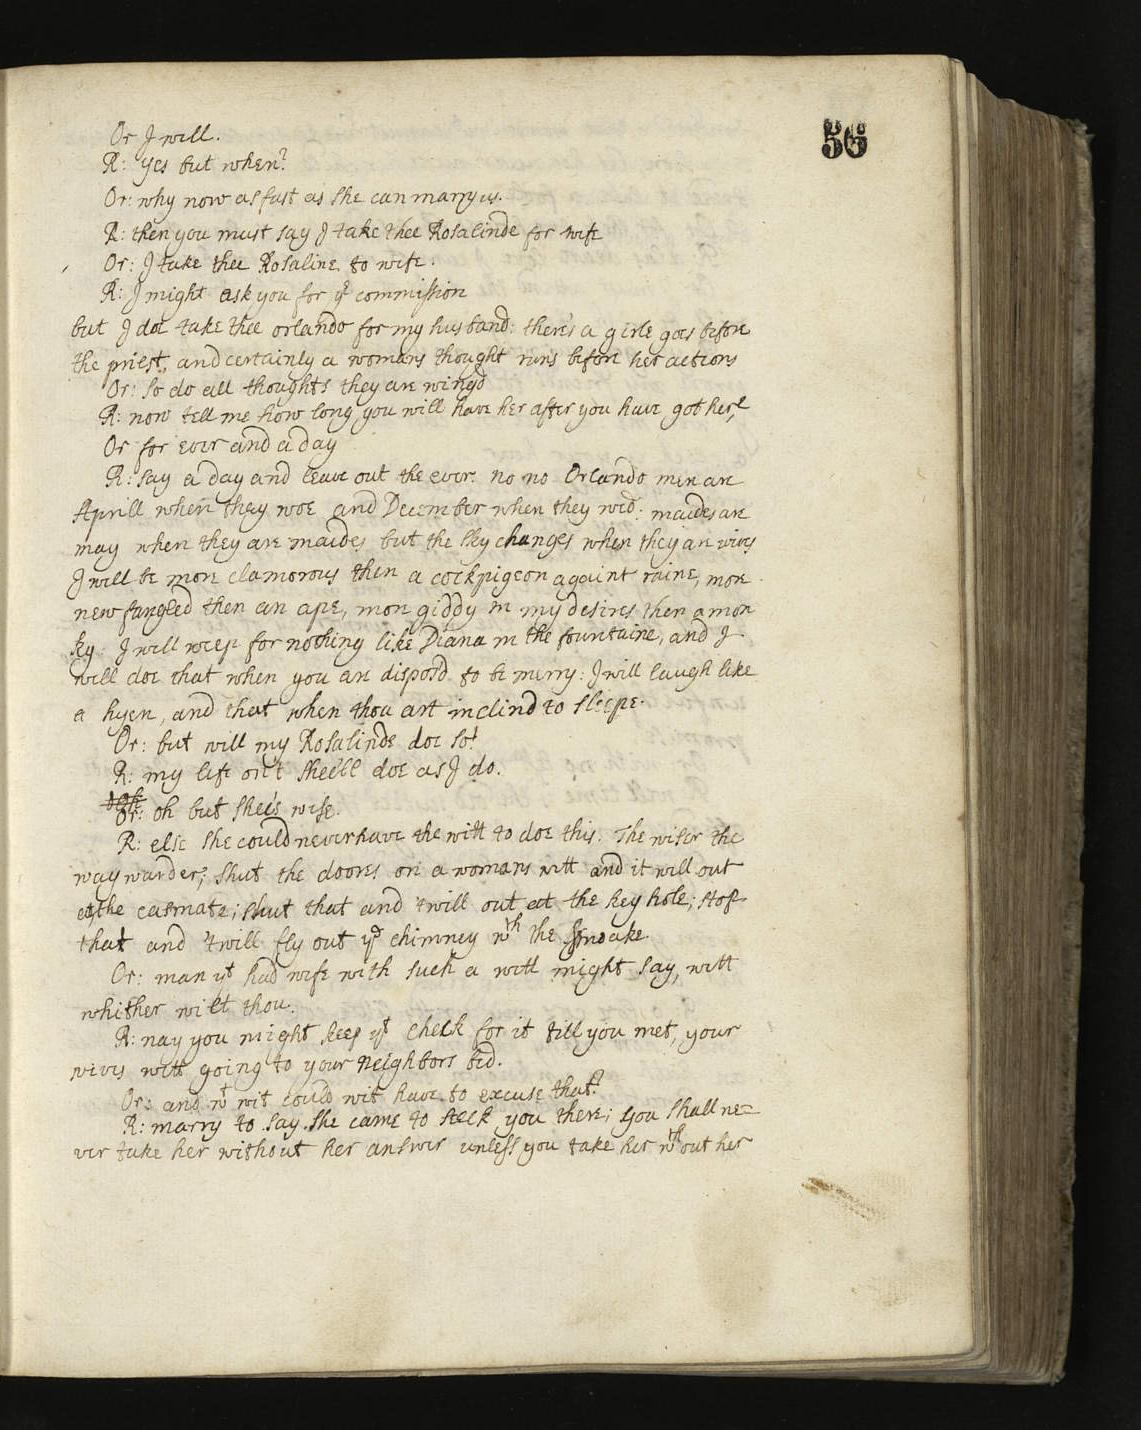 56
Or I will.
R: yes but when?
Or: why now as fast as she can marry us.
R: then you must say I take thee Rosalinde for wife
Or: I take thee Rosaline to wife.
R: I might ask you for yr commission
but I doe take thee orlando for my husband: there's a girle goes before
the priest, and certainly a womans thought runs before her actions
Or: so do all thoughts they are wingd
R: now tell me how long you will have her after you have got her,
Or for ever and a day
R: say a day and leave out the ever. no no Orlando men are
Aprill when they woe and December when they wed: maides are
may when they are maides but the sky changes when they are wives
I will be more clamorous then a cockpigeon againt raine, more
new fangled then an ape, more giddy in my desires then a mon
ky. I will weep for nothing like Diana in the fountaine, and I
will doe that when you are disposd to be merry: I will laugh like
a hyen, and that when thou art inclind to sleepe.
Or: but will my Rosalinde doe so?
R: my life on't shee'll doe as I do.
Or: oh but shee's wise.
R: else she could never have the witt to doe this. The wiser the
waywarder; shut the doores on a womans witt and it will out
at the casmate; shut that and 'twill out at the key hole; stop
that and 'twill fly out ye chimney wth the smoake
Or: man yt had wife with such a witt might say, witt
whither wilt thou.
R: nay you might keep yt check for it till you met, your
wives witt going to your neighbors bed.
Or: and wt wit could wit have to excuse that?
R: marry to say she came to seek you there; you shall ne=
ver take her without her answer unless you take her wthout her